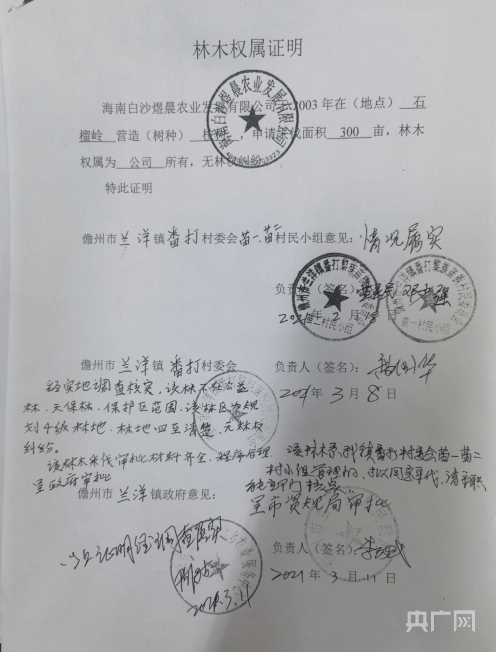 林木权属证明
海南白沙煜晨农业发展有限公司 2003年在(地点) 石
榴岭 营造(树种) 申请 伐面积 300 亩,林木
权属为 公司 所有,无林权纠纷
特此证明
儋州市兰洋镇番打村委会苗一、苗二村民小组意见:情况属实
负责人(签名):
2021年3月8日
儋州市兰洋镇番打村委会 负责人(签名):
2021年3月8日
经实地调查核实,该林不在公益
林、天保林、保护区范围,该林区为规
划4级林地,林地四至清楚,无林权
纠纷。
该林木采伐审批材料齐全,程序合理
呈政府审批
该林木系利镇番打村委会苗一苗二
村小组管理的,拟同意采伐,请
部门核点。
呈市资规局审批
儋州市兰洋镇政府意见:
以上证明经调查属实
2021.3.11
负责人(签名):李
2021年3月11日
苗二村民小组
苗一村民小组
央广网
CNR.CN